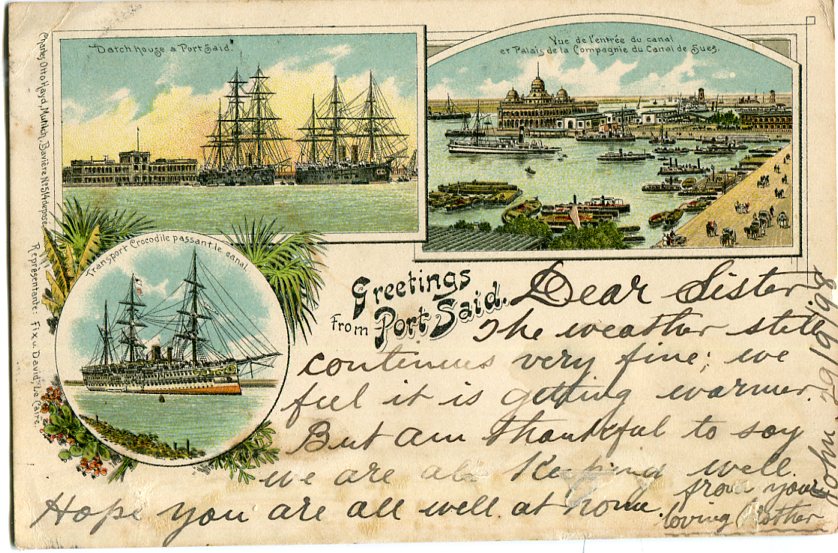 Datch house a Port Said.
Vue de l'entrée du canal
et Palais de la Compagnie du Canal de Sues.
Transport Crocodile passant le canal
Charles Otto Hayd, Munich, Bavière
Représentante: Fix u. David, Le Caire.
Greetings
From Port Said.
Dear Sister,
The weather still
continues very fine; we
feel it is getting warmer.
But am thankful to say
we are all keeping well.
Hope you are all well at home.
from your
loving Brother
John